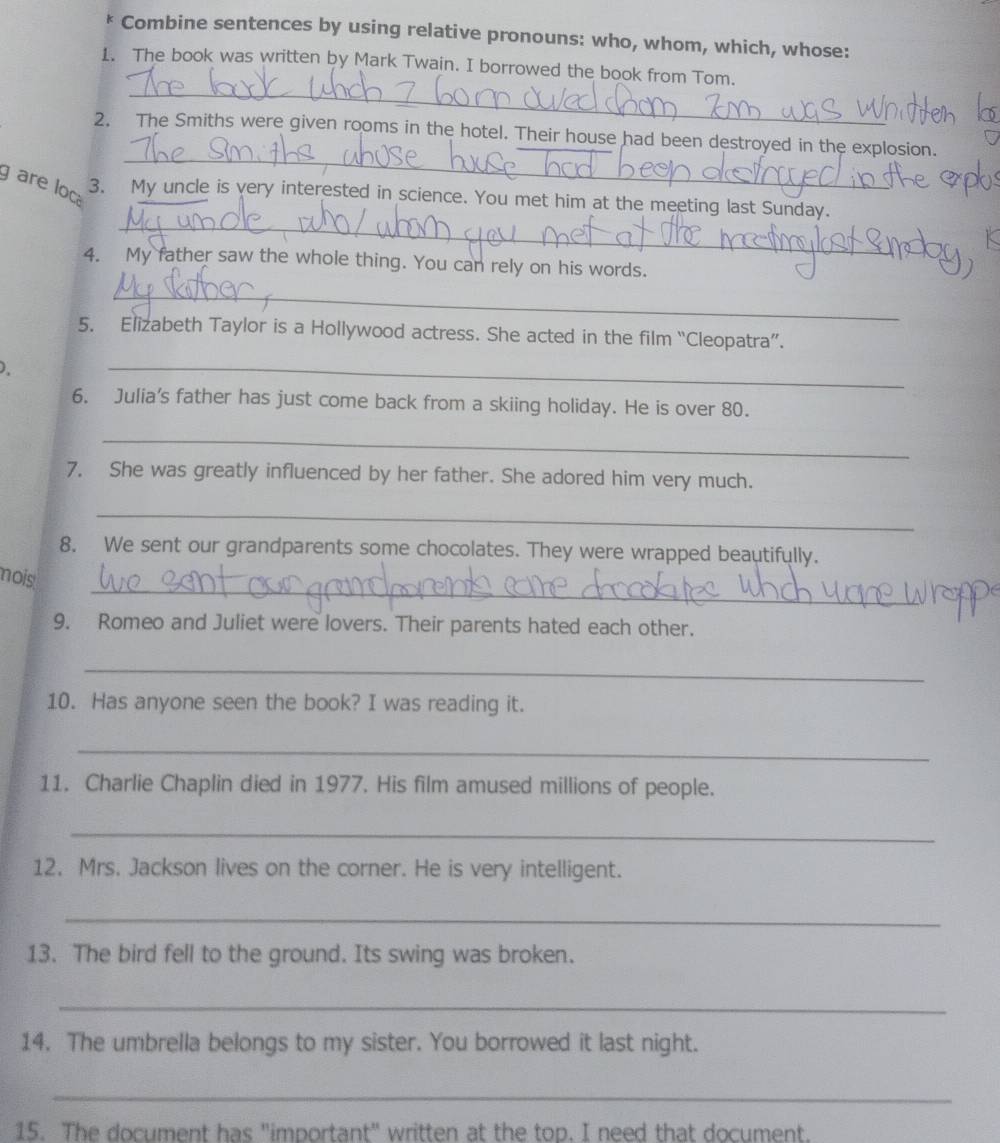 * Combine sentences by using relative pronouns: who, whom, which, whose:
1. The book was written by Mark Twain. I borrowed the book from Tom.
The book which I borrowed from Tom was written
2. The Smiths were given rooms in the hotel. Their house had been destroyed in the explosion.
The Smiths, whose house had been destroyed in the explos
g are loca
3. My uncle is very interested in science. You met him at the meeting last Sunday.
My uncle, who/whom you met at the meeting last Sunday,
4. My father saw the whole thing. You can rely on his words.
My father,
5. Elizabeth Taylor is a Hollywood actress. She acted in the film “Cleopatra”.
6. Julia’s father has just come back from a skiing holiday. He is over 80.
7. She was greatly influenced by her father. She adored him very much.
8. We sent our grandparents some chocolates. They were wrapped beautifully.
nois
We sent our grandparents some chocolates which were wrappe
9. Romeo and Juliet were lovers. Their parents hated each other.
10. Has anyone seen the book? I was reading it.
11. Charlie Chaplin died in 1977. His film amused millions of people.
12. Mrs. Jackson lives on the corner. He is very intelligent.
13. The bird fell to the ground. Its swing was broken.
14. The umbrella belongs to my sister. You borrowed it last night.
15. The document has "important" written at the top. I need that document.